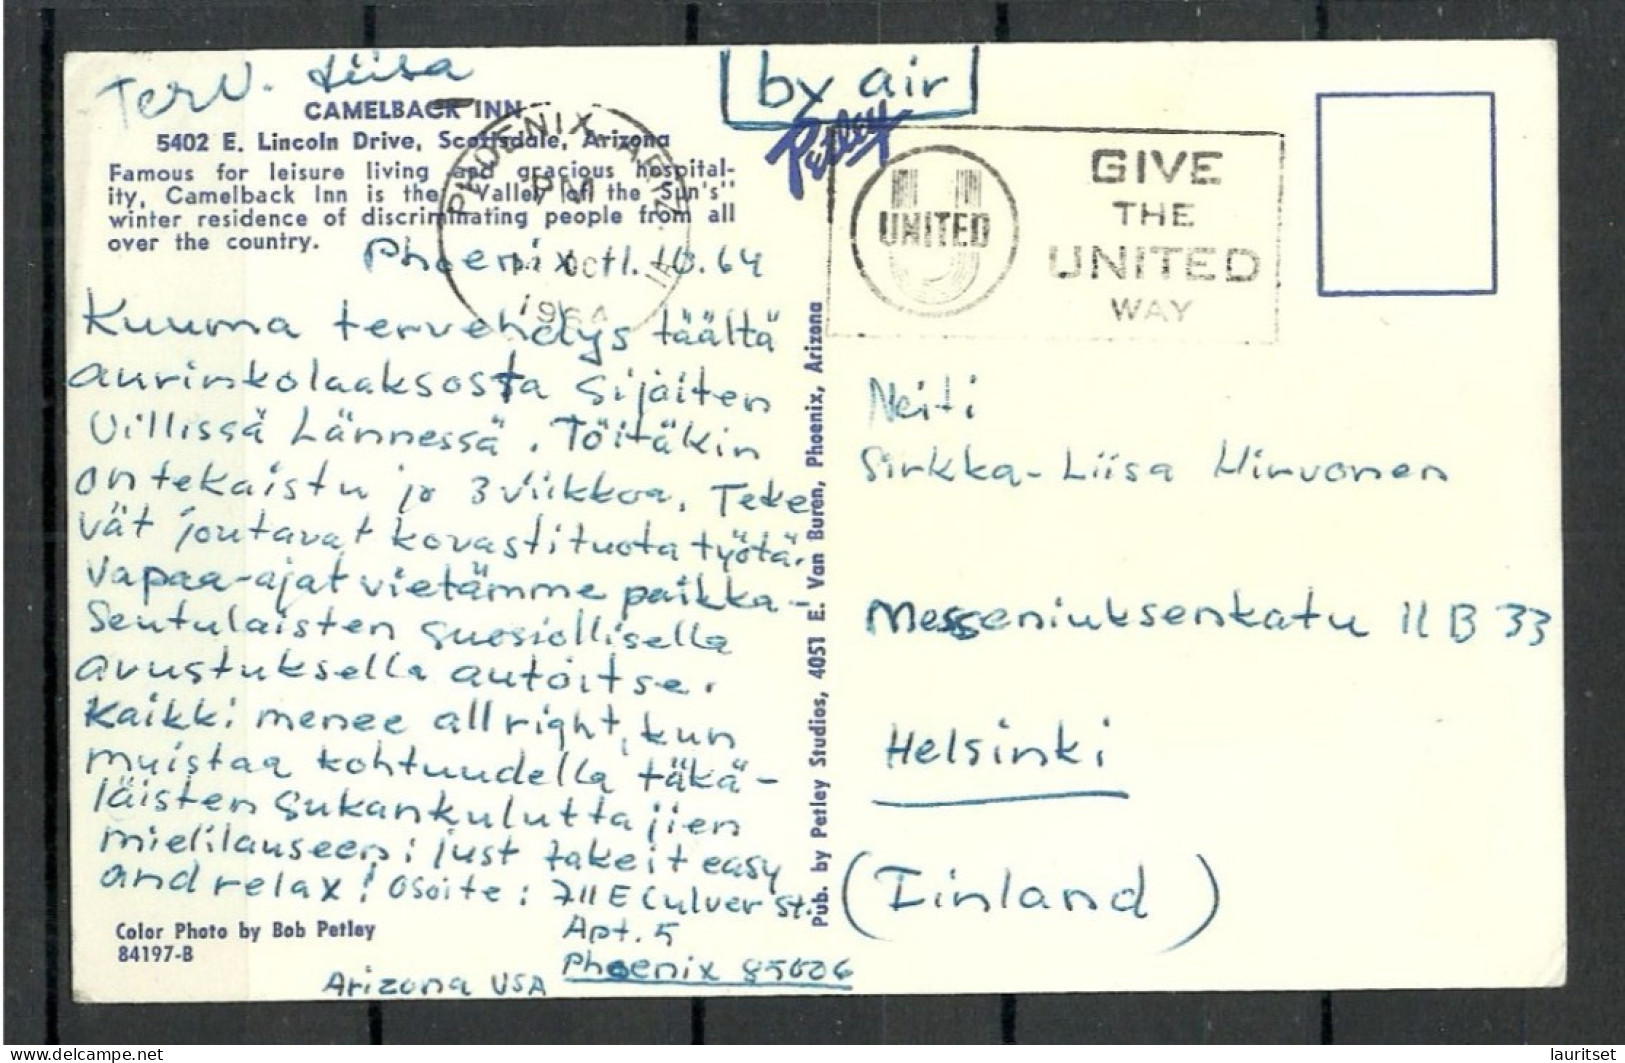 Terv. Liisa
by air
CAMELBACK INN
5402 E. Lincoln Drive, Scottsdale, Arizona
Famous for leisure living and gracious hospital-
ity, Camelback Inn is the "Valley of the Sun's"
winter residence of discriminating people from all
over the country.
Petley
PHOENIX, ARIZ.
PM
11 OCT
1964
1A
UNITED
GIVE
THE
UNITED
WAY
Phoenix 11.10.64
Kuuma tervehdys täältä
aurinkolaaksosta sijaiten
Villissä Lännessä. Töitäkin
on tekaistu jo 3 viikkoa. Teke
vät joutavat kovasti tuota työtä.
Vapaa-ajat vietämme paikka-
seutulaisten suosiollisella
avustuksella autoitse.
Kaikki menee allright, kun
muistaa kohtuudella täkä-
läisten sukankuluttajien
mielilauseen: just take it easy
and relax! Osoite: 711 E Culver st.
Apt. 5
Phoenix 85006
Arizona USA
Color Photo by Bob Petley
84197-B
Pub. by Petley Studios, 4051 E. Van Buren, Phoenix, Arizona
Neiti
Sirkka-Liisa Hirvonen
Messeniuksenkatu 11 B 33
Helsinki
(Finland)
lauritset